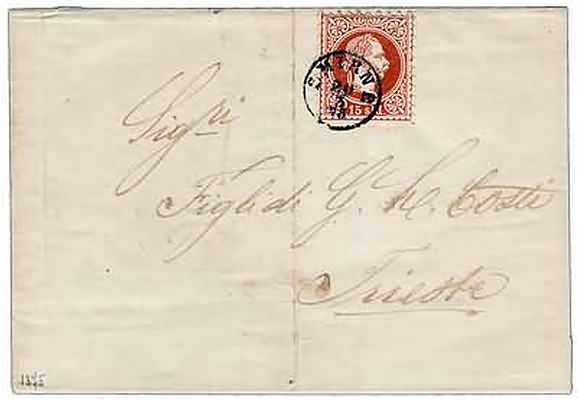 SMIRNE
15 sld
Sigri
Figli di G. M. Costi
Trieste
1875